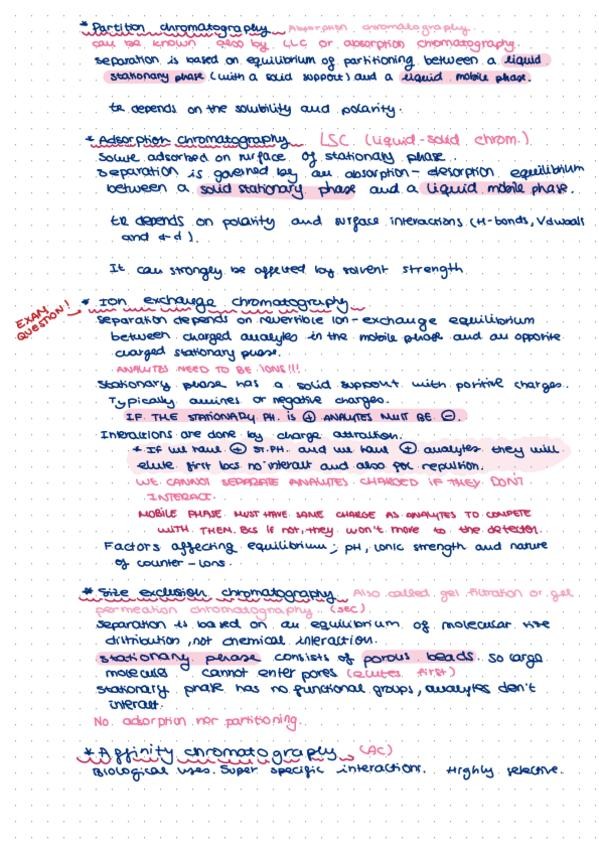 * Partition chromatography Absorption chromatography.
can be known also by LLC or absorption chromatography.
separation is based on equilibrium of partitioning between a liquid
stationary phase (with a solid support) and a liquid mobile phase.
tR depends on the solubility and polarity.
* Adsorption chromatography LSC (liquid-solid chrom.)
Solute adsorbed on surface of stationary phase..
Separation is governed by an absorption-desorption equilibrium
between a solid stationary phase and a liquid mobile phase.
tR depends on polarity and surface interactions (H-bonds, Vdwaals
and d-d).
It can strongly be affected by solvent strength
EXAM
QUESTION!
* Ion exchange chromatography
separation depends on reversible ion-exchange equilibrium
between charged analytes in the mobile phase and an opposite
charged stationary phase.
ANALYTES NEED TO BE IONS!!!
Stationary phase has a solid support with positive charges.
Typically amines or negative charges.
IF THE STATIONARY PH. is ⊕ ANALYTES MUST BE ⊖.
Interactions are done by charge attraction.
* If we have ⊕ St.PH. and we have ⊕ analytes they will
elute first bcs no interact and also for repulsion.
WE CANNOT SEPARATE ANALYTES CHARGED IF THEY DON'T
INTERACT.
MOBILE PHASE MUST HAVE SAME CHARGE AS ANALYTES TO COMPETE
WITH THEM. Bcs if not, they won't move to the detector.
Factors affecting equilibrium; pH, ionic strength and nature
of counter-ions.
* Size exclusion chromatography Also called gel filtration or gel
permeation chromatography. (SEC)
Separation is based on an equilibrium of molecular size
distribution, not chemical interaction.
Stationary phase consists of porous beads. So large
molecules cannot enter pores (elutes first)
stationary phase has no functional groups, analytes don't
interact.
No adsorption nor partitioning.
* Affinity chromatography (AC)
Biological uses. Super specific interactions. Highly selective.